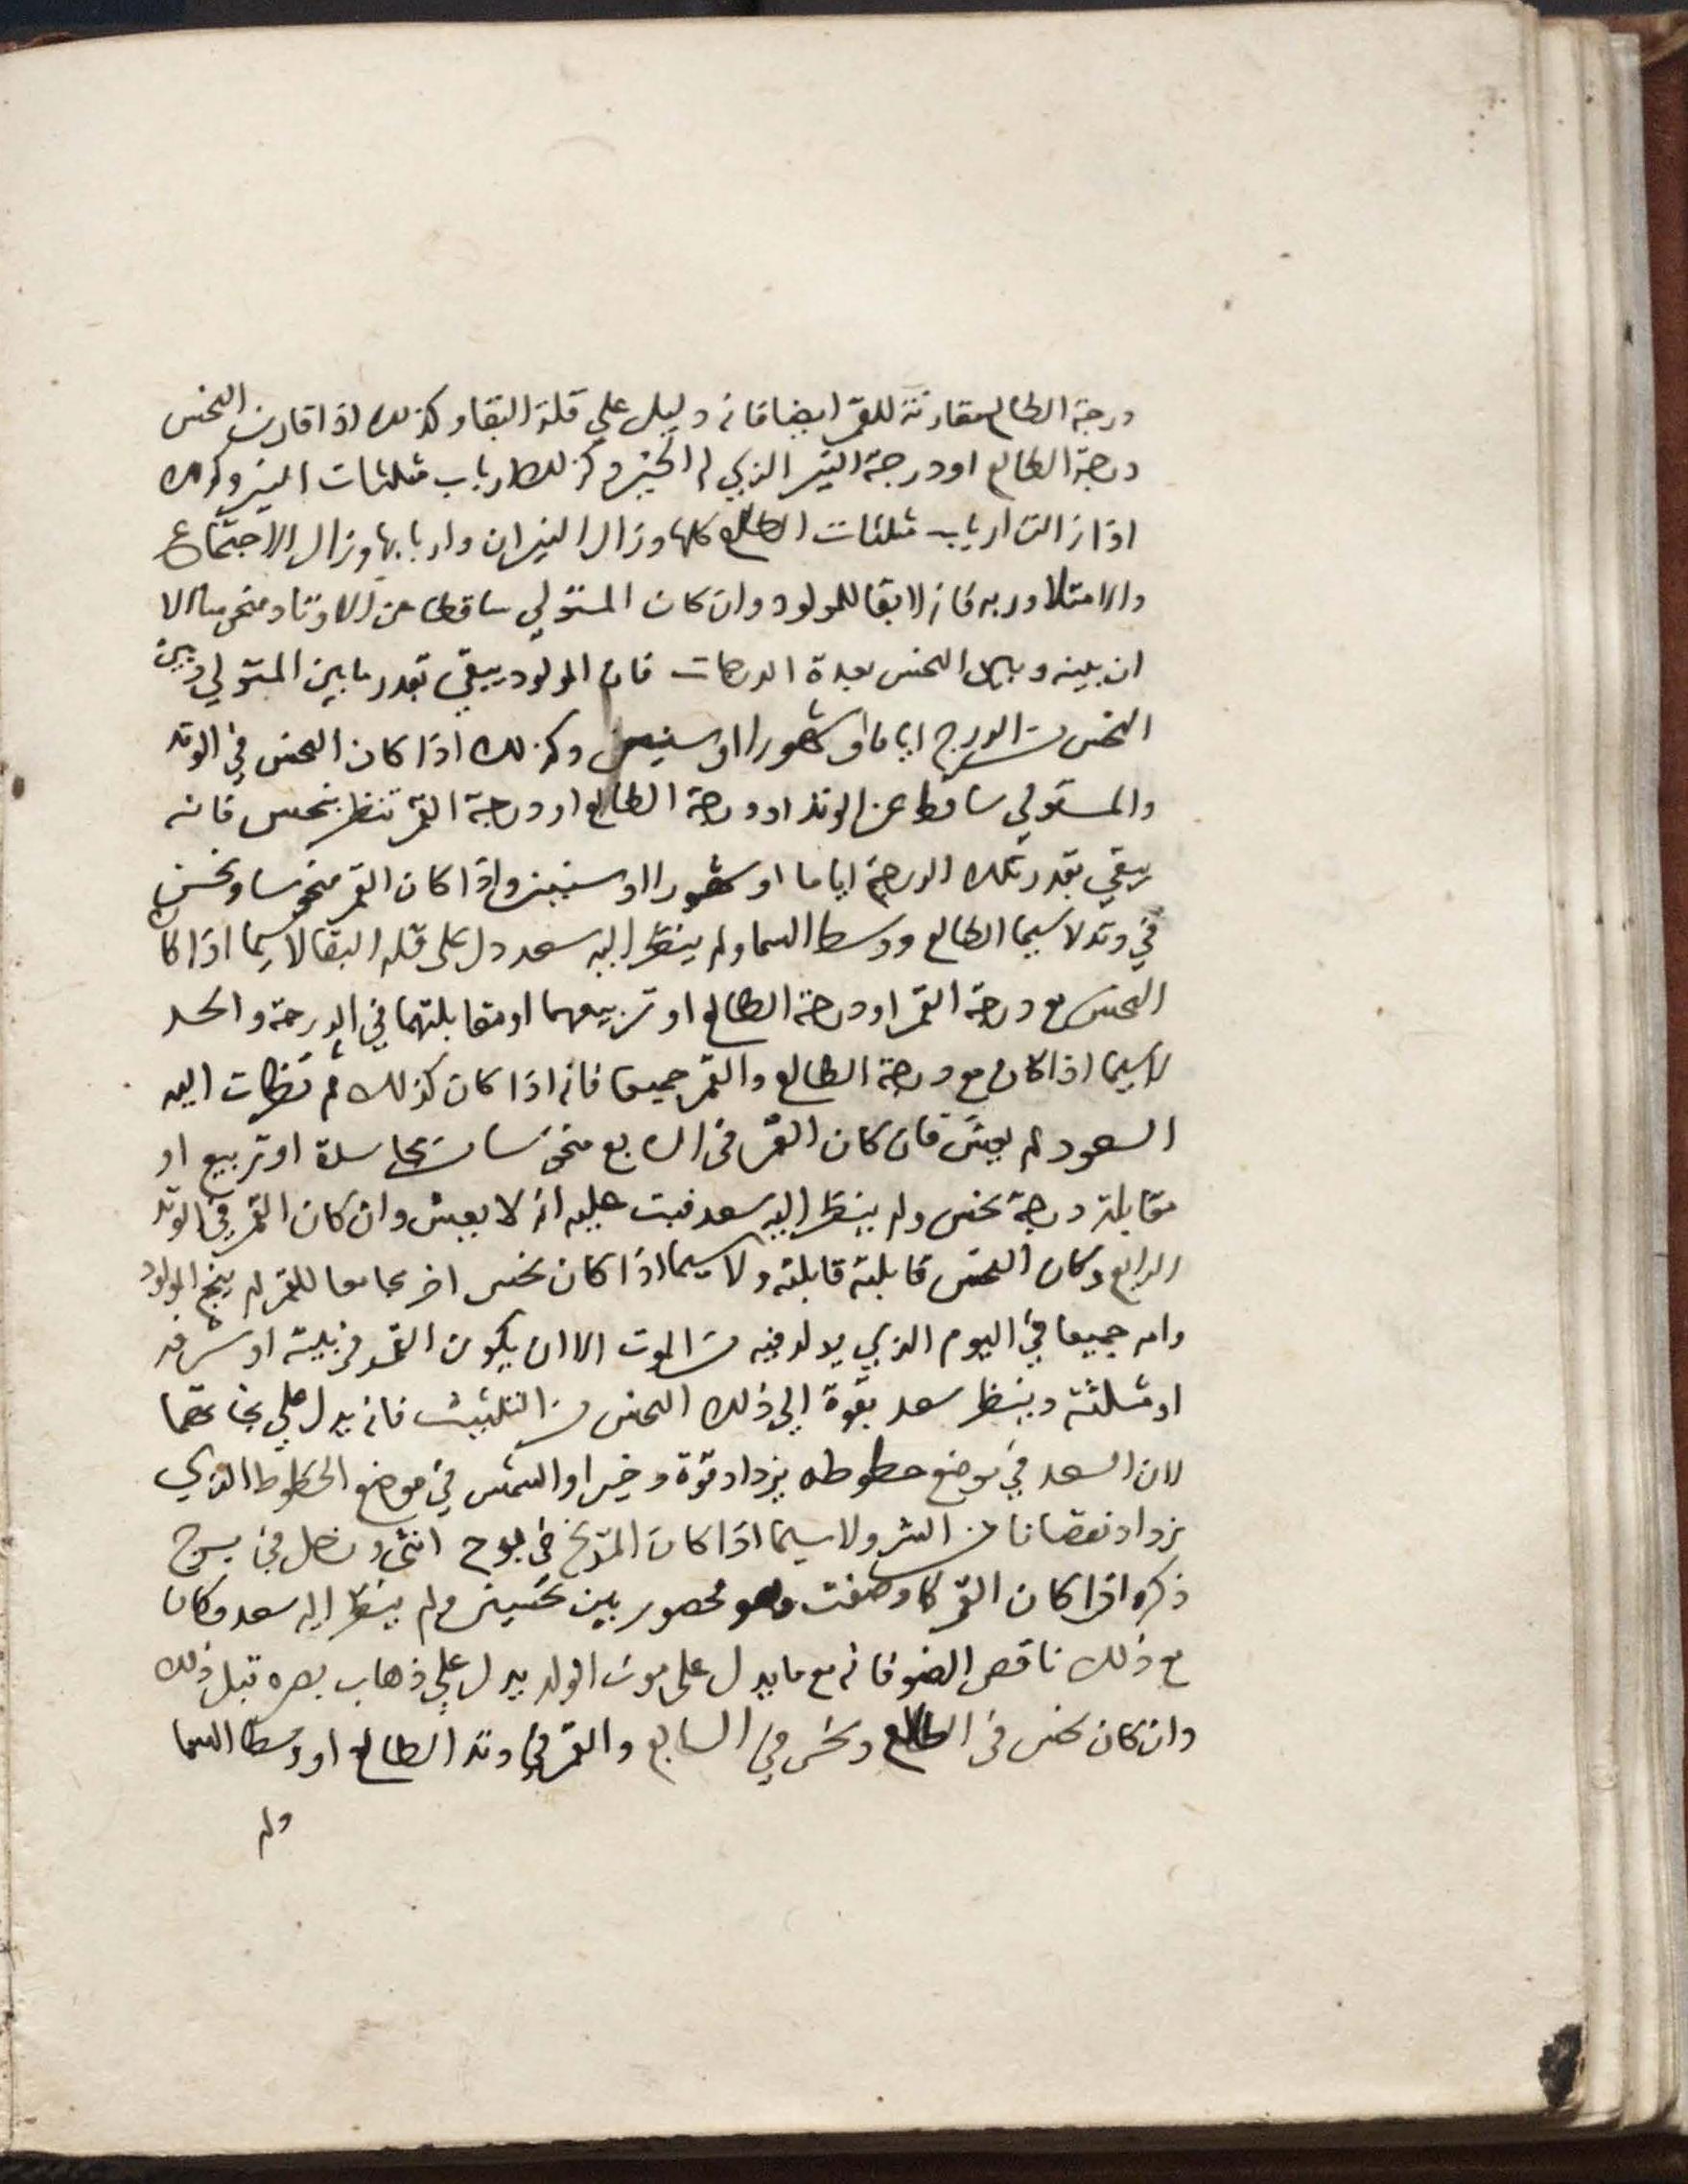 درجة الطالع مقارنة للقمر ايضا فانه دليل علي قلة البقا وكذلك اذا قارن النحس
درجة الطالع او درجة النير الذي له الحيز وكذلك ارباب مثلثات النير وكذلك
اذا زالت ارباب مثلثات الطالع كلها وزال النيران واربابها وزال الاجتماع
والامتلا وربه فانه لا بقا للمولود وان كان المستولي ساقطا عن الاوتاد منحوسا الا
ان بينه وبين النحس بعدة الدرجات فان المولود يبقي بقدر ما بين المستولي وبين
النحس من الدرج اياما او شهورا او سنين وكذلك اذا كان النحس في الوتد
والمستولي ساقط عن الوتد او درجة الطالع او درجة القمر تنظر بنحس فانه
يبقي بقدر تلك الدرجة اياما او شهورا او سنين واذا كان القمر منحوسا ونحس
في وتد لاسيما الطالع ووسط السما ولم ينظر اليه سعد دل على قلة البقا لاسيما اذا كان
النحس مع درجة القمر او درجة الطالع او تربيعهما او مقابلتهما في الدرجة والحد
لاسيما اذا كان مع درجة الطالع والقمر جميعا فانه اذا كان كذلك ثم نظرت اليه
السعود لم يعش فان كان القمر في الرابع منحوسا من مجاسدة او تربيع او
مقابلة درجة نحس ولم ينظر اليه سعد فبت عليه انه لا يعيش وان كان القمر في الوتد
الرابع وكان النحس قابلته قابلته ولاسيما اذا كان نحس اخر مجامعا للقمر لم ينج المولود
وامه جميعا في اليوم الذي يولد فيه من الموت الا ان يكون القمر في بيته او شرفه
او مثلثته وينظر سعد بقوة الي ذلك النحس من التثليث فانه يدل علي نجاتهما
لان السعد في موضع حظوظه يزداد قوة وخيرا والشمس في موضع الحظوظ الذي
يزداد نقصانا من الشر ولاسيما اذا كان المريخ في برج انثى وزحل في برج
ذكر اذا كان القمر كما وصفت وهو محصور بين نحسين ولم ينظر اليه سعد وكان
مع ذلك ناقص الضو فانه مع ما يدل على موت الولد يدل علي ذهاب بصره قبل ذلك
وان كان نحس في الطالع ونحس في السابع والقمر في وتد الطالع او وسط السما
ولم